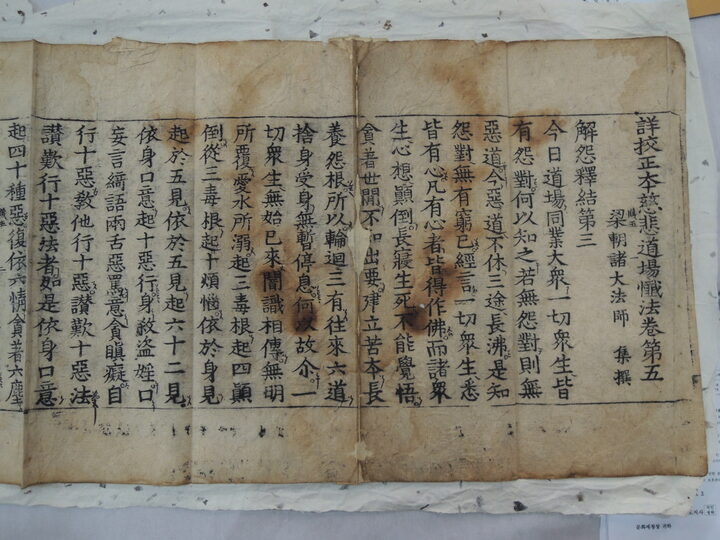 詳校正本慈悲道場懺法卷第五
梁朝諸大法師 集撰
解怨釋結第三
今日道場同業大衆一切衆生皆
有怨對何以知之若無怨對則無
惡道今惡道不休三途長沸是知
怨對無有窮已經言一切衆生悉
皆有心凡有心者皆得作佛而諸衆
生心想顚倒長寢生死不能覺悟
貪著世間不知出要建立苦本長
養怨根所以輪迴三有往來六道
捨身受身無暫停息何以故尒一
切衆生無始已來闇識相傳無明
所覆愛水所溺起三毒根起四顚
倒從三毒根起十煩惱依於身見
起於五見依於五見起六十二見
依身口意起十惡行身殺盜婬口
妄言綺語兩舌惡罵意貪瞋癡自
行十惡敎他行十惡讃歎十惡法
讃歎行十惡法者如是依身口意
起四十種惡復依六情貪著六塵